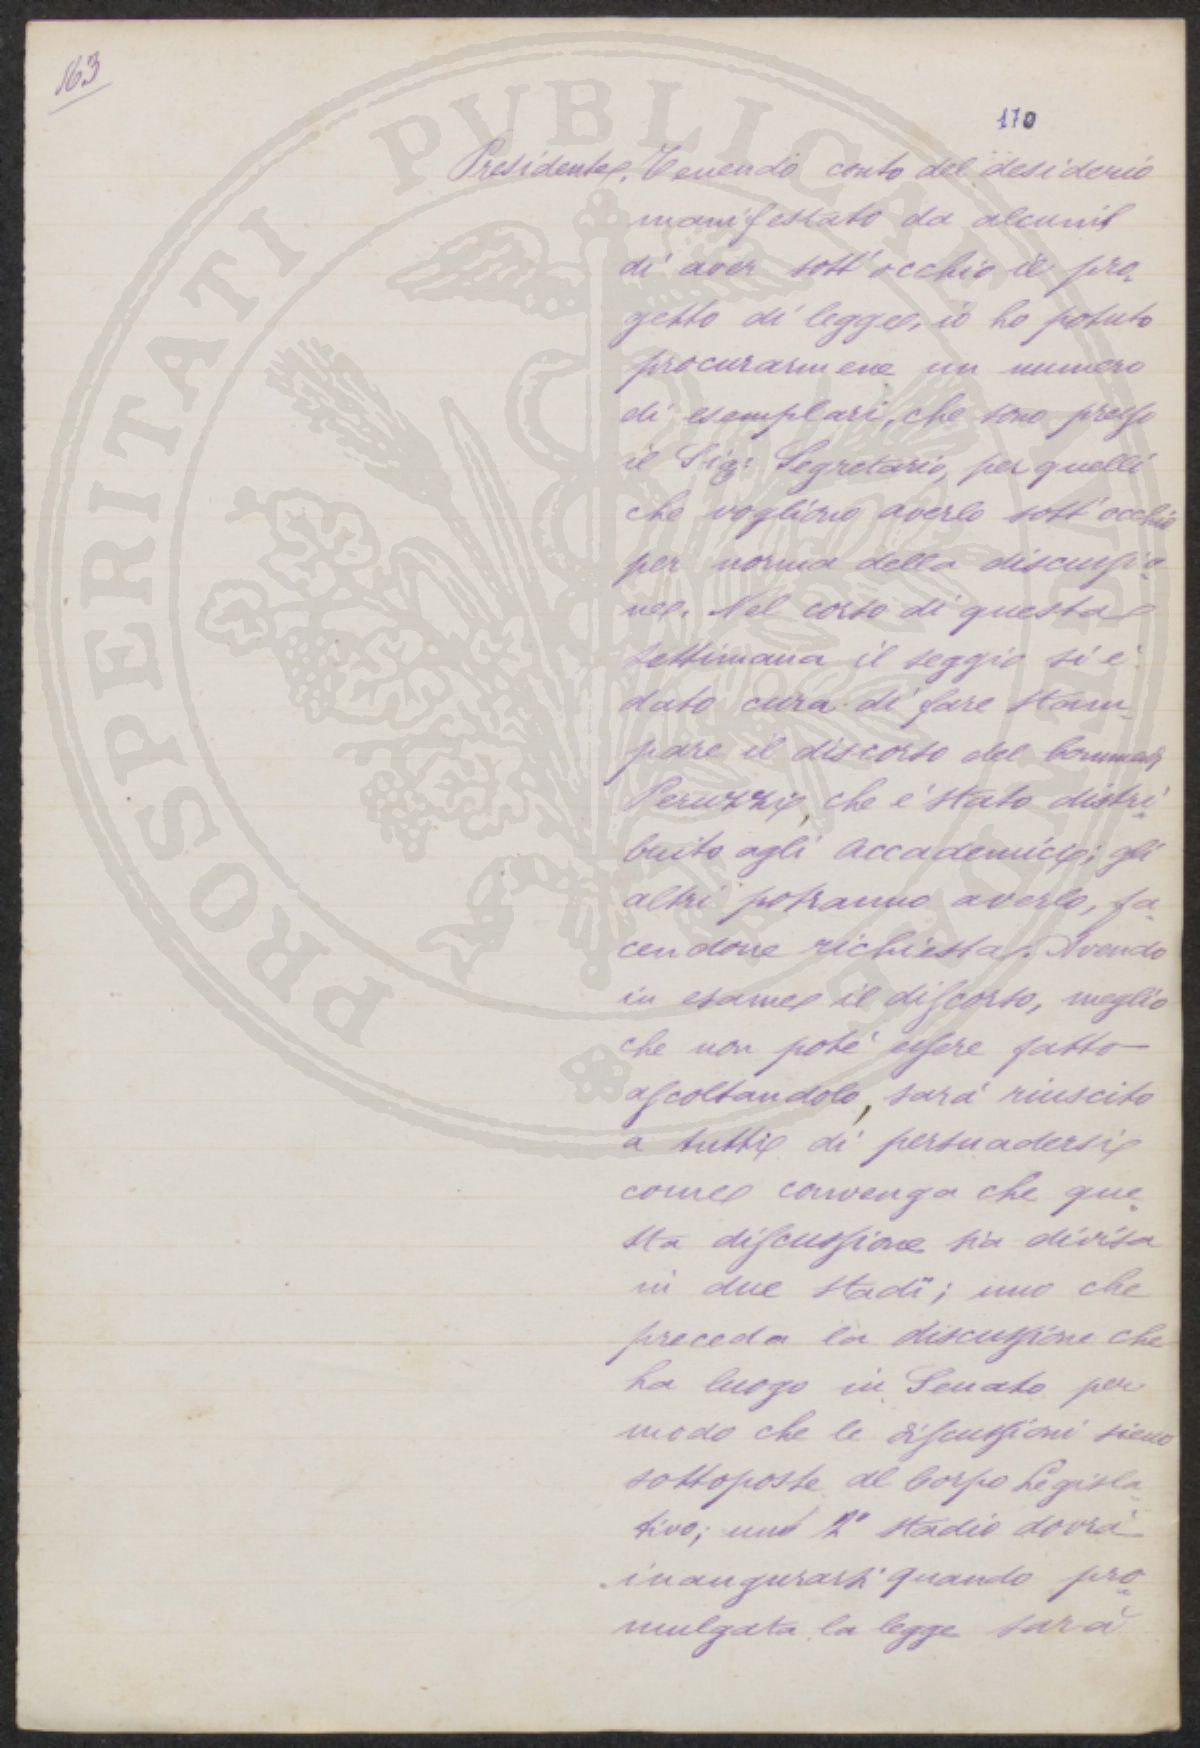 163
170
Presidente. Tenendo conto del desiderio
manifestato da alcuni
di aver sott'occhio il pro
getto di legge, io ho potuto
procurarmene un numero
di esemplari, che sono presso
il Sig: Segretario, per quelli
che vogliono averlo sott'occhio
per norma della discussio
ne. Nel corso di questa
settimana il seggio si è
dato cura di fare stam
pare il discorso del Commend.
Peruzzi, che è stato distri
buito agli Accademici; gli
altri potranno averlo, fa
cendone richiesta. Avendo
in esame il discorso, meglio
che non poté essere fatto
ascoltandolo, sarà riuscito
a tutti di persuadersi
come convenga che que
sta discussione sia divisa
in due stadî; uno che
preceda la discussione che
ha luogo in Senato per
modo che le discussioni sieno
sottoposte al Corpo Legisla
tivo; uno 2° stadio dovrà
inaugurarsi quando pro
mulgata la legge sarà
PROSPERITATI PUBLICAE